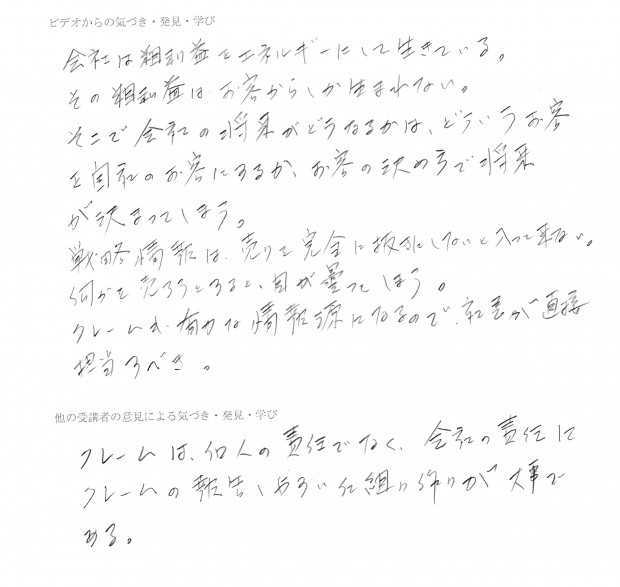 ビデオからの気づき・発見・学び
会社は粗利益をエネルギーにして生きている。
その粗利益は、お客からしか生まれない。
そこで会社の将来がどうなるかは、どういうお客
を自社のお客にするか、お客の決め方で将来
が決まってしまう。
戦略情報は、売りを完全に抜きにしないと入って来ない。
何かを売ろうとすると、目が曇ってしまう。
クレームも有力な情報源になるので、社長が直接
担当すべき。
他の受講者の意見による気づき・発見・学び
クレームは、個人の責任でなく、会社の責任に
クレームの報告しやすい仕組み作りが大事で
ある。